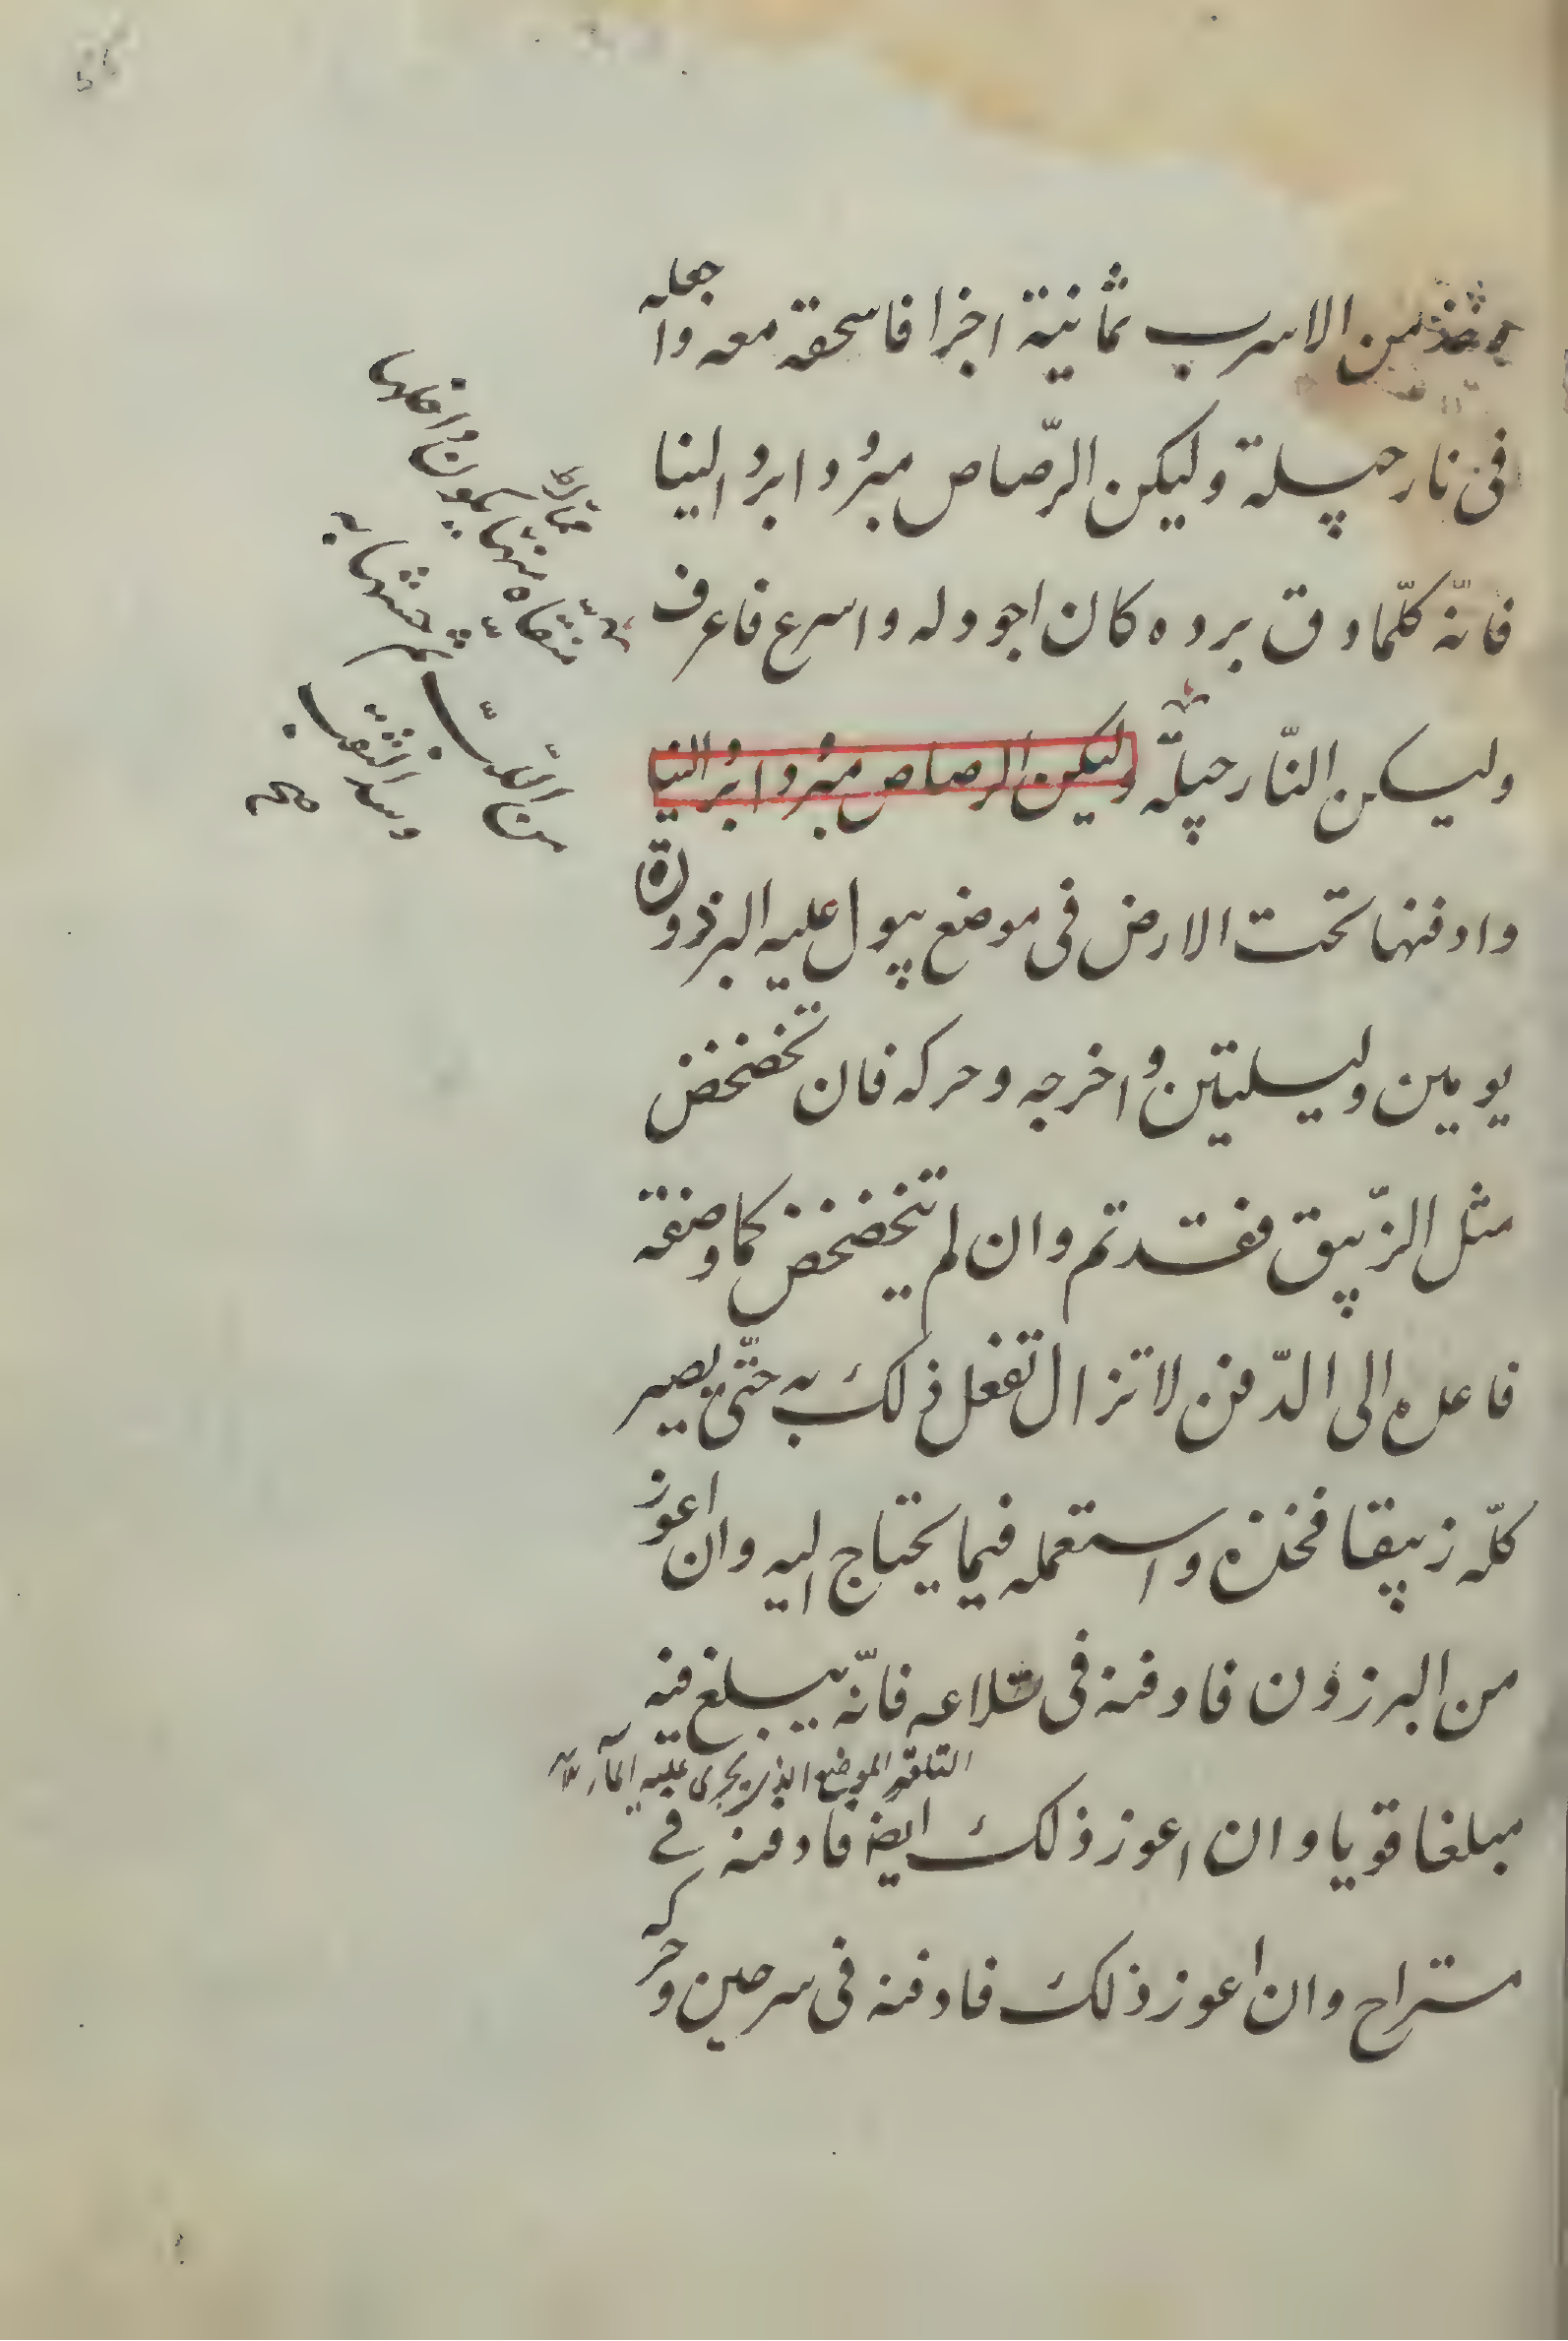 وخذ من الاسرب ثمانية اجزا فاسحقه معه واجعله
فى نار حيلة وليكن الرّصاص مبرُودا بردا لينا
فانّه كلّما دق برده كان اجود له واسرع فاعرف
وليكن النّار حيلّة وليكن الرصاص مبرُودا برُدا لينا
وادفنها تحت الارض فى موضع يبول عليه البرذون
يومين وليلتين واخرجه وحركه فان تخضخض
مثل الزّيبق فقد تم وان لم يتخضخض كما وصفته
فاعده الى الدّفن لا تزال تفعل ذلك به حتّى يصير
كلّه زيبقا فخذه واستعمله فيما يحتاج اليه وان اعوز
من البرزون فادفنه فى تلاعه فانّه يبلغ فيه
التلعة الموضع الذى يجرى عليه المآء
مبلغا قويا وان اعوز ذلك ايضا فادفنه فے
مستراح وان اعوز ذلك فادفنه فى سرجين وحركه